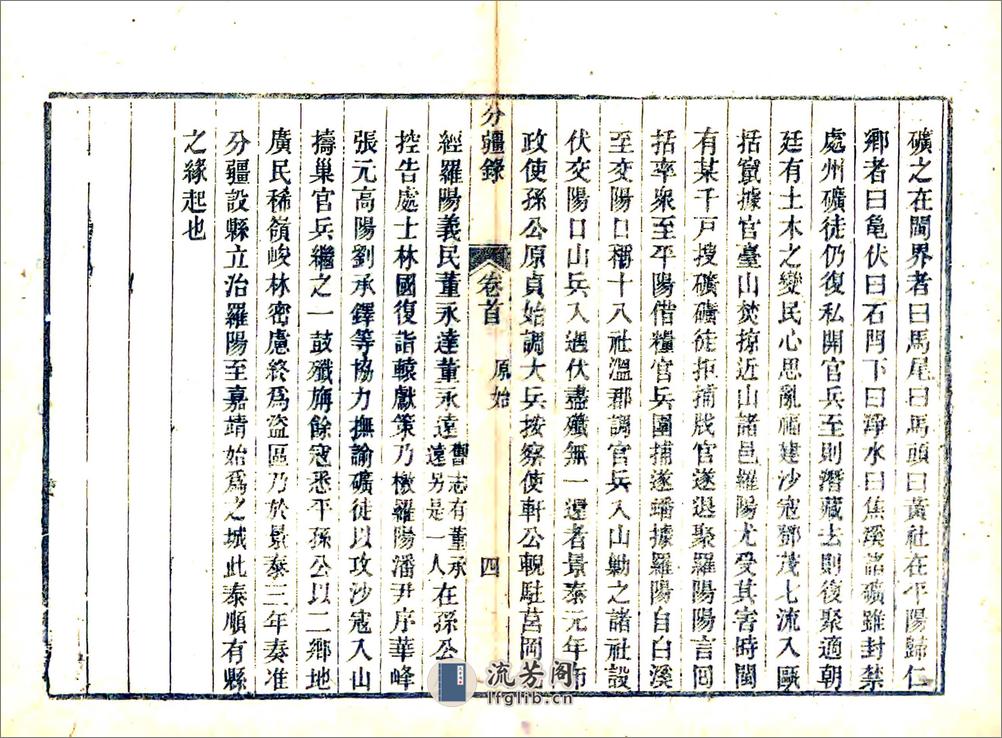 礦之在閩界者曰馬尾曰馬頭曰黃社在平陽歸仁
鄉者曰龜伏曰石門下曰淨水曰焦溪諸礦雖封禁
處州礦徒仍復私開官兵至則潛藏去則復聚適朝
廷有土木之變民心思亂福建沙寇鄧茂七流入甌
括竄據官臺山焚掠近山諸邑羅陽尤受其害時閩
有某千戶搜礦礦徒拒捕戕官遂退聚羅陽陽言囘
括率衆至平陽偕糧官兵圍捕遂蟠據羅陽自白溪
至交陽口稱十八社溫郡調官兵入山勦之諸社設
伏交陽口山兵入過伏盡殲無一還者景泰元年布
政使孫公原貞始調大兵按察使軒公輗駐莒岡
分疆錄 卷首 原始 四
經羅陽義民董永達董永遠舊志有董承遠另是一人在孫公
控告處士林國復詣轅獻策乃檄羅陽潘尹序華峰
張元高陽劉承鐸等協力撫諭礦徒以攻沙寇入山
擣巢官兵繼之一鼓殲旃餘寇悉平孫公以二鄉地
廣民稀嶺峻林密慮終爲盜區乃於景泰三年奏准
分疆設縣立治羅陽至嘉靖始爲之城此泰順有縣
之緣起也
流芳阁
lfglib.cn